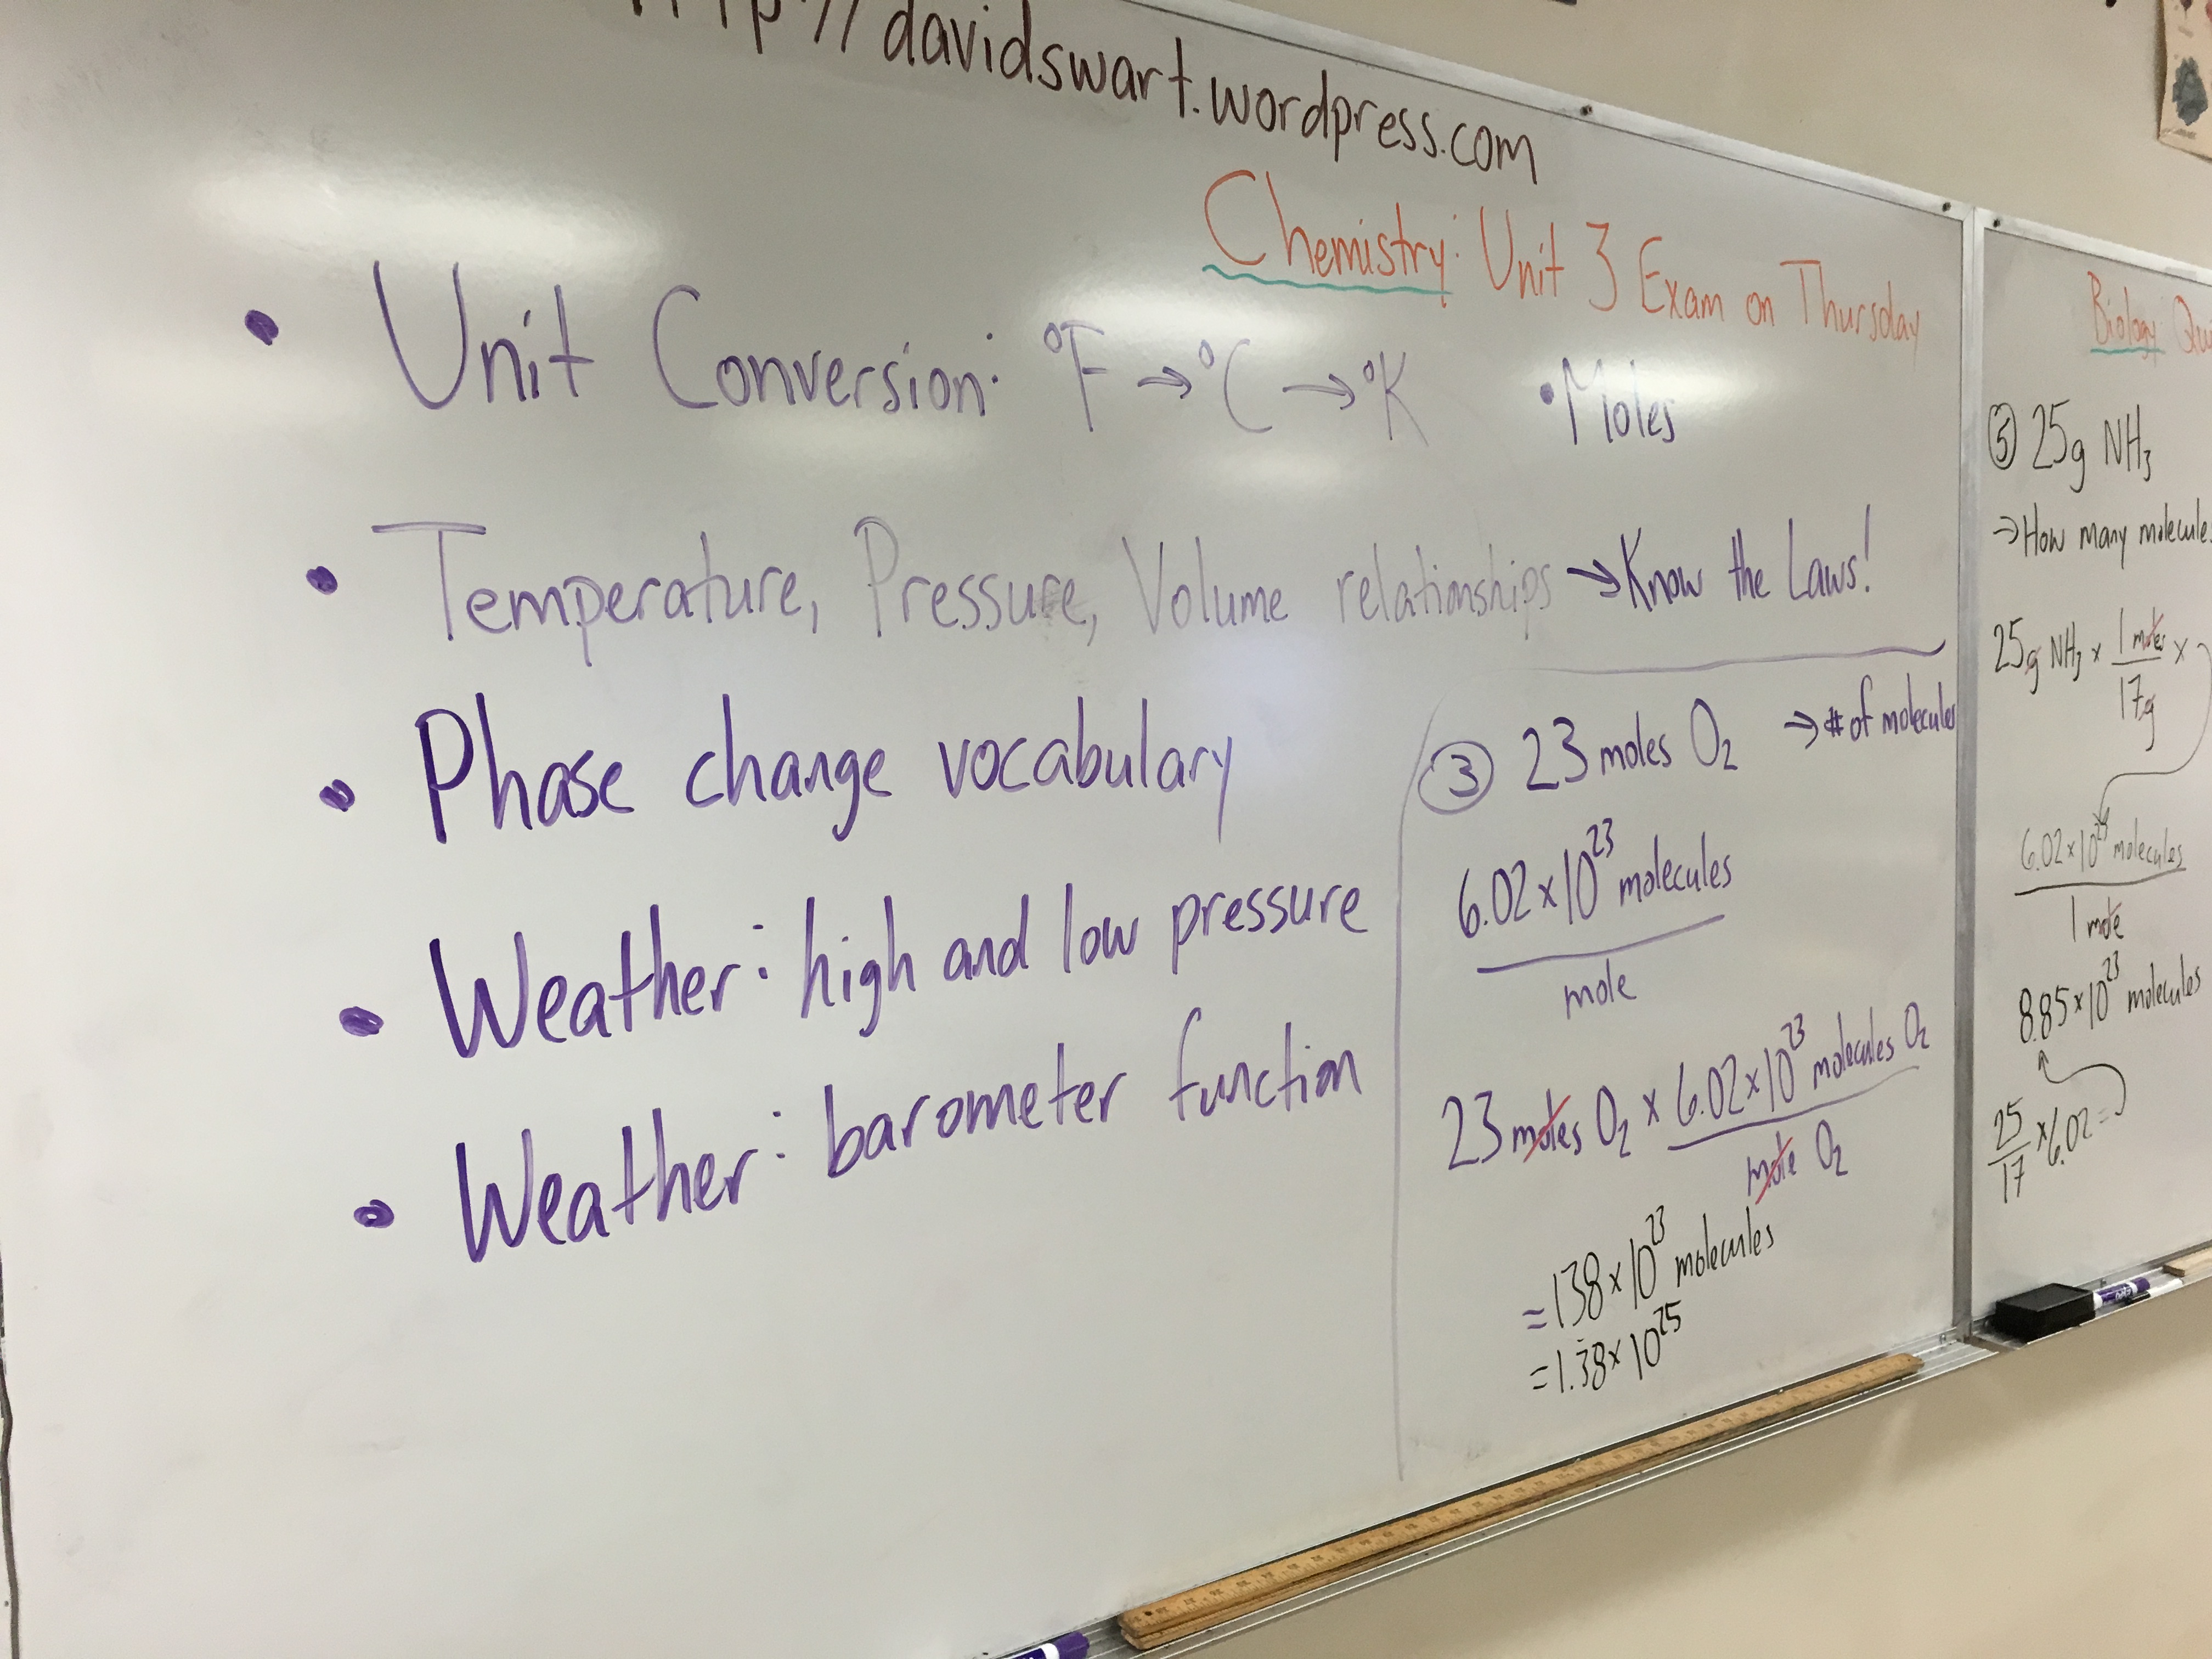 http://davidswart.wordpress.com
Chemistry: Unit 3 Exam on Thursday
• Unit Conversion: °F → °C → °K
• Moles
• Temperature, Pressure, Volume relationships → Know the Laws!
• Phase change vocabulary
• Weather: high and low pressure
• Weather: barometer function
③ 23 moles O₂ → # of molecules
6.02 × 10²³ molecules
mole
23 moles O₂ × 6.02 × 10²³ molecules O₂
mole O₂
= 138 × 10²³ molecules
= 1.38 × 10²⁵
Biology
⑤ 25g NH₃
→ How many molecule
25g NH₃ × 1 moles ×
17g
6.02 × 10²³ molecules
1 mole
8.85 × 10²³ molecules
25 × 6.02 =
17